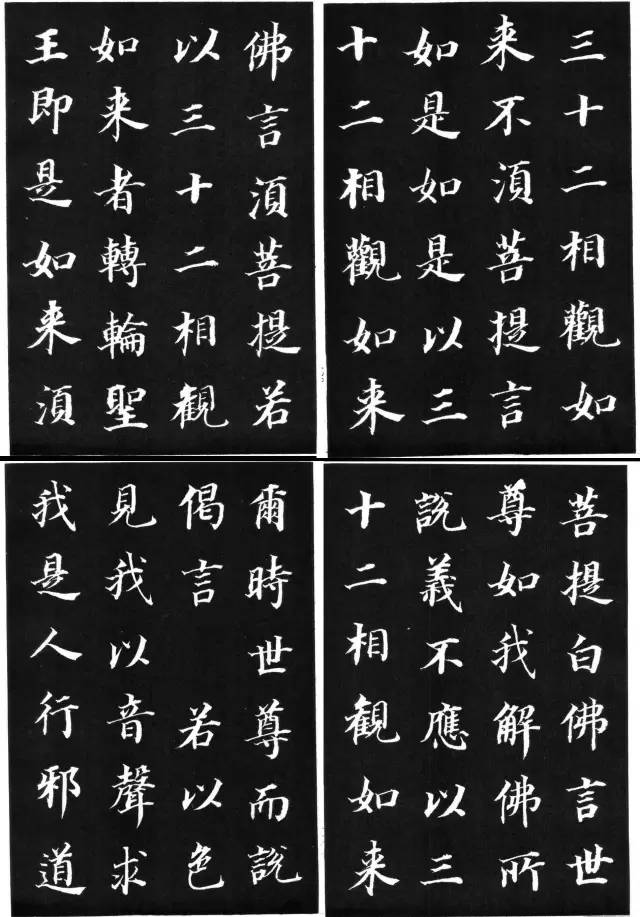 三十二相觀如
来不須菩提言
如是如是以三
十二相觀如来
佛言須菩提若
以三十二相觀
如来者轉輪聖
王即是如来須
菩提白佛言世
尊如我解佛所
說義不應以三
十二相觀如来
爾時世尊而說
偈言 若以色
見我以音聲求
我是人行邪道